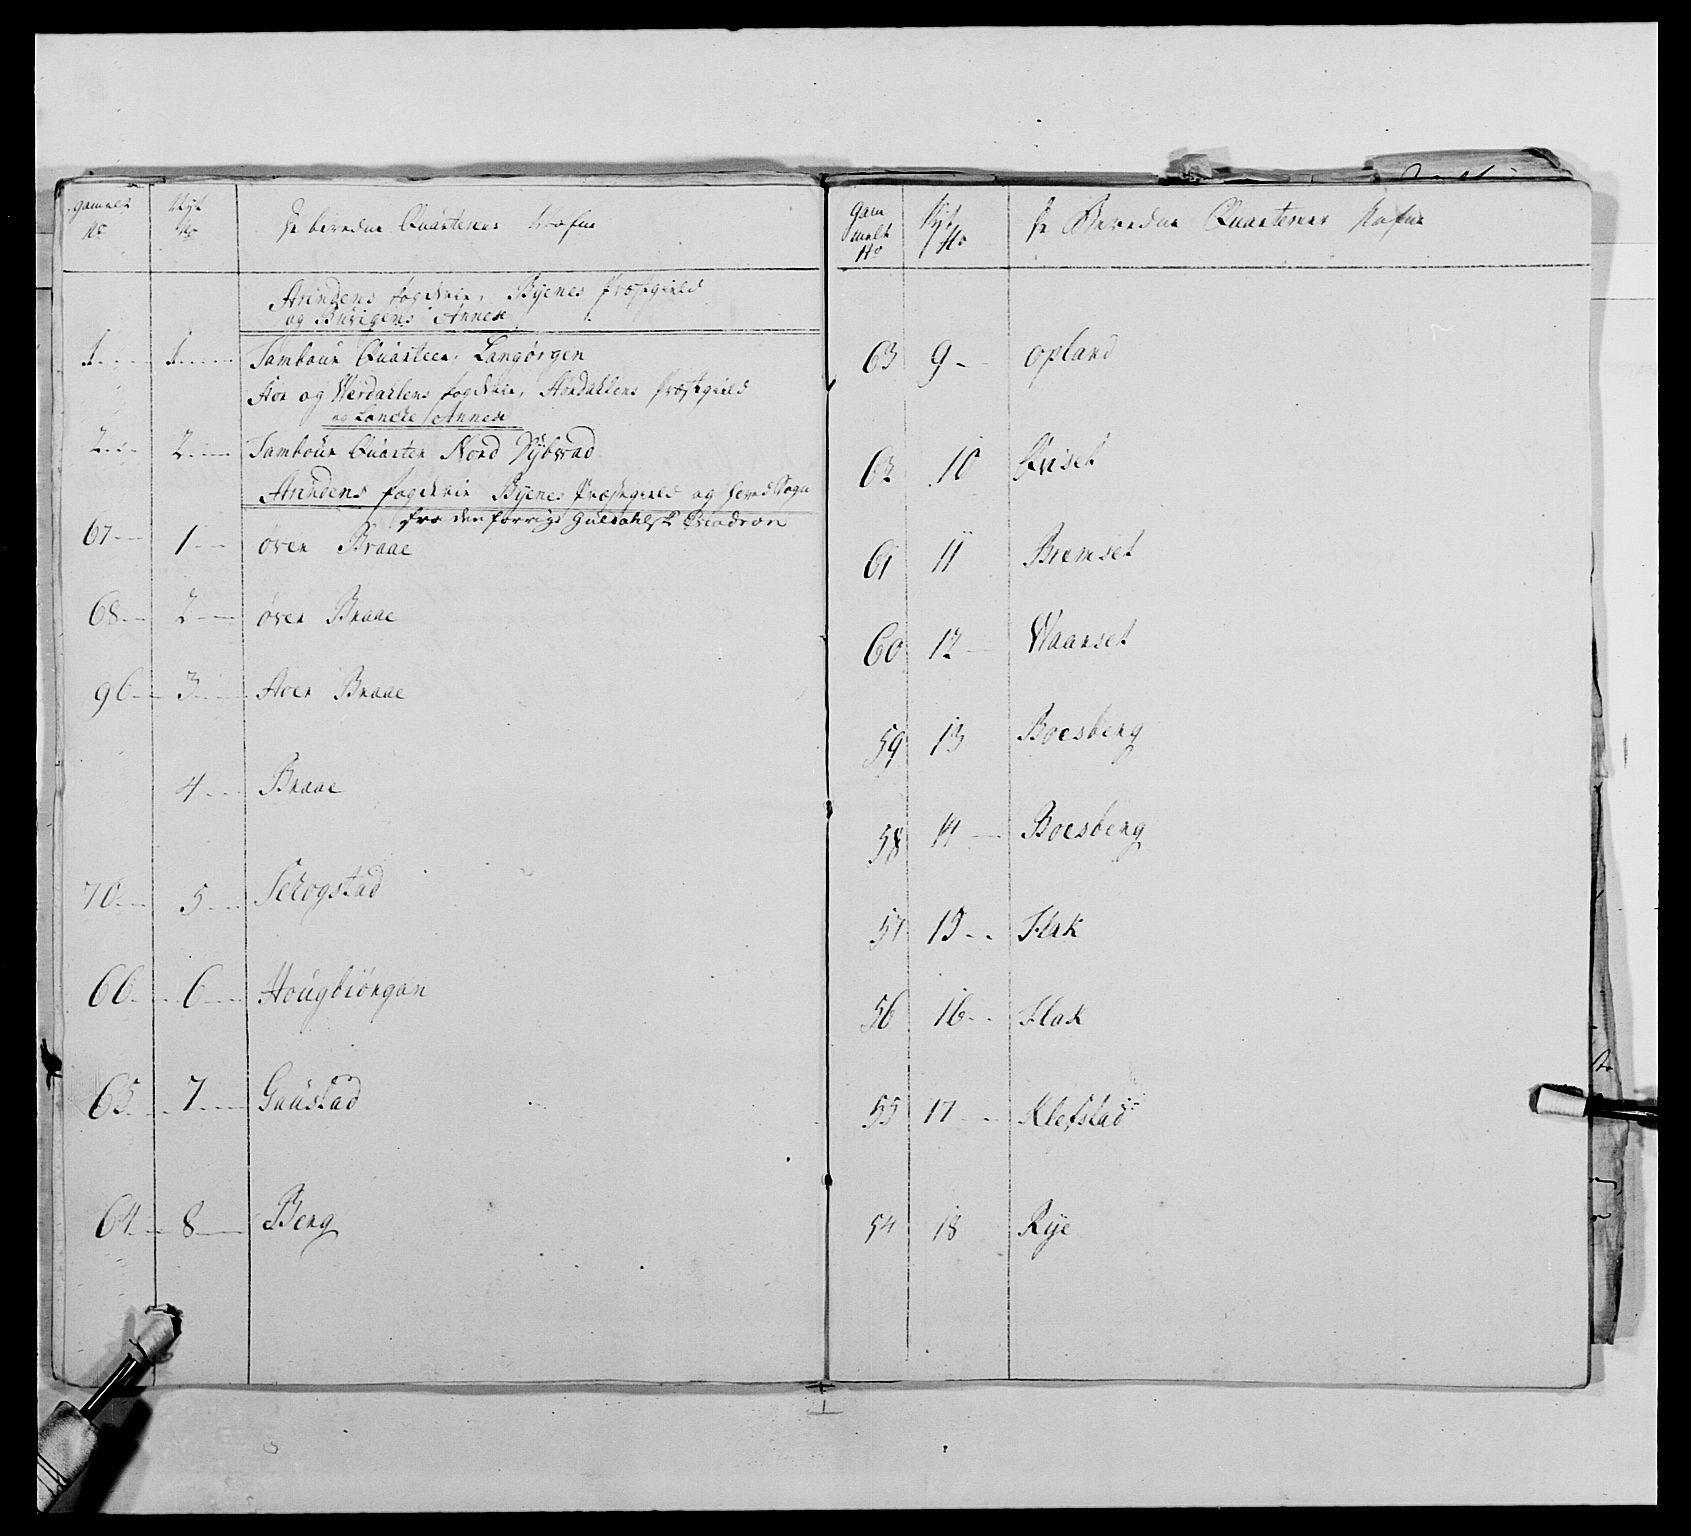 gamelt No | Nyt No | De beredne Quarterers Nafne
Strindens fogderie, Byenes Præstgield
og Buvigens Annex
1 | 1 | Tambour Quarteer, Langørgen
Stør og Werdalens fogderie, Størdalens Præstgield
og Loncke Annex
2 | 2 | Tambour Quarter Nord Nybrad
Strindens fogderie Byenes Præstegield og Sogn
fra den forrige Guldahlske
67 | 1 | øver Braae
68 | 2 | øver Braae
96 | 3 | Stoer Braae
4 | Braae
70 | 5 | Schogstad
66 | 6 | Hougbiørgan
65 | 7 | Gaustad
64 | 8 | Berg
Gammelt No | Nyt No | De Beredne Quarterers Nafne
63 | 9 | opland
62 | 10 | Qviset
61 | 11 | Bremset
60 | 12 | Waanset
59 | 13 | Boesberg
58 | 14 | Boesberg
57 | 15 | Flak
56 | 16 | Flak
55 | 17 | Klefstad
54 | 18 | Rye